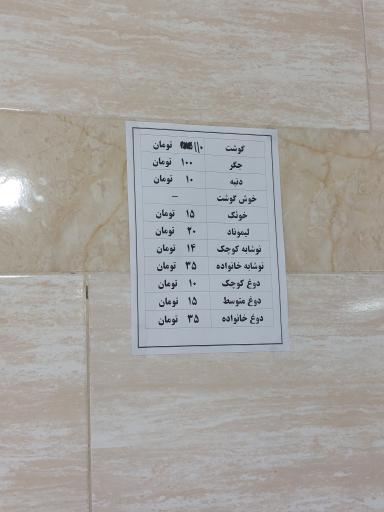 گوشت ۱۱۰ تومان
جگر ۱۰۰ تومان
دنبه ۱۰ تومان
خوش گوشت –
خونک ۱۵ تومان
لیموناد ۲۰ تومان
نوشابه کوچک ۱۴ تومان
نوشابه خانواده ۳۵ تومان
دوغ کوچک ۱۰ تومان
دوغ متوسط ۱۵ تومان
دوغ خانواده ۳۵ تومان